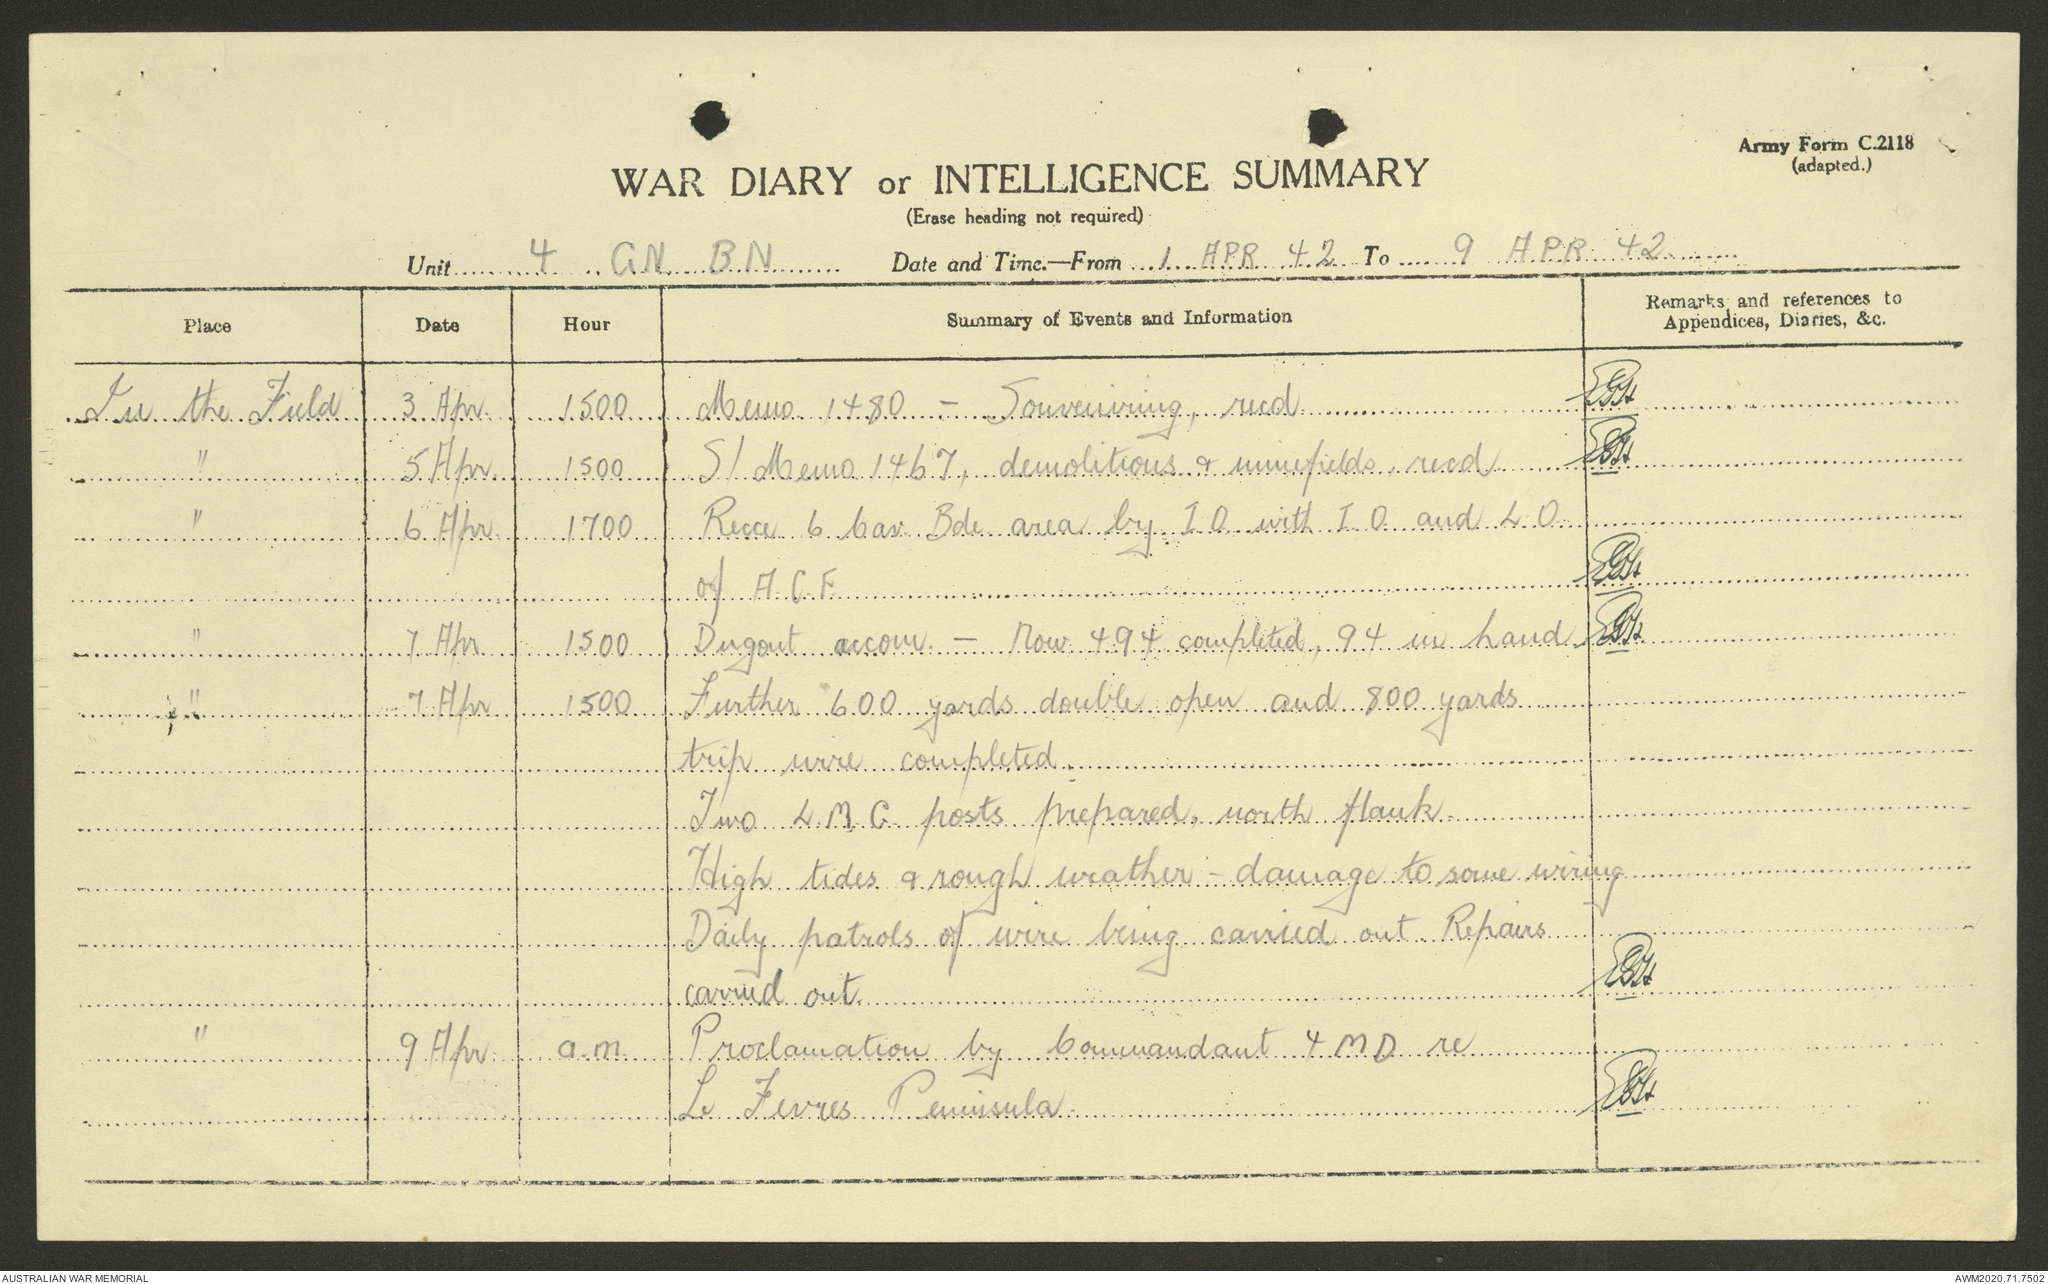 Army Form C.2118
(adapted.)
WAR DIARY or INTELLIGENCE SUMMARY
(Erase heading not required)
Unit 4 GN BN Date and Time.—From 1 APR 42 To 9 APR 42
Place Date Hour Summary of Events and Information Remarks and references to Appendices, Diaries, &c.
In the Field 3 Apr. 1500 Memo 1480 - Souveniring, recd
" 5 Apr. 1500 S/ Memo 1467, demolitions & minefields, recd
" 6 Apr. 1700 Recce 6 Cav Bde area by I O with I O and L O
of A C F
" 7 Apr 1500 Dugout accom. - Now 494 completed, 94 in hand
" 7 Apr 1500 Further 600 yards double open and 800 yards
trip wire completed.
Two L.M.G. posts prepared, north flank.
High tides & rough weather - damage to some wiring
Daily patrols of wire being carried out. Repairs
carried out.
" 9 Apr. a.m. Proclamation by Commandant 4 M D re
Le Fevres Peninsula.
AUSTRALIAN WAR MEMORIAL
AWM2020.71.7502